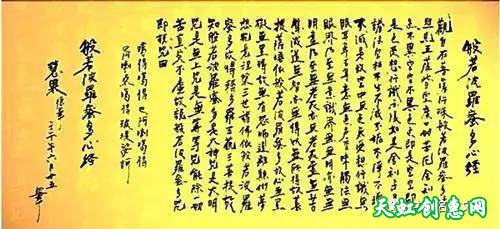 般若波羅蜜多心經
觀自在菩薩行深般若波羅蜜多
不異空空不異色色即是空空即
是色受想行識亦復如是舍利子是
諸法空相不生不滅不垢不淨不增
不減是故空中無色無受想行識無
眼耳鼻舌身意無色聲香味觸法無
眼界乃至無意識界無無明
明盡乃至無老死亦無老死盡無苦
集滅道無智亦無得以無所得故菩
提薩埵依般若波羅蜜多故心無罣
礙無罣礙故無有恐怖遠離顛倒夢
想究竟涅槃三世諸佛依般若波羅
蜜多故得阿耨多羅三藐三菩提故
知般若波羅蜜多是大神咒是大明
咒是無上咒是無等等咒能除一切
苦真實不虛故說般若波羅蜜多咒
即說咒曰
揭諦揭諦波羅揭諦
般若波羅蜜多心經
天虹创意网